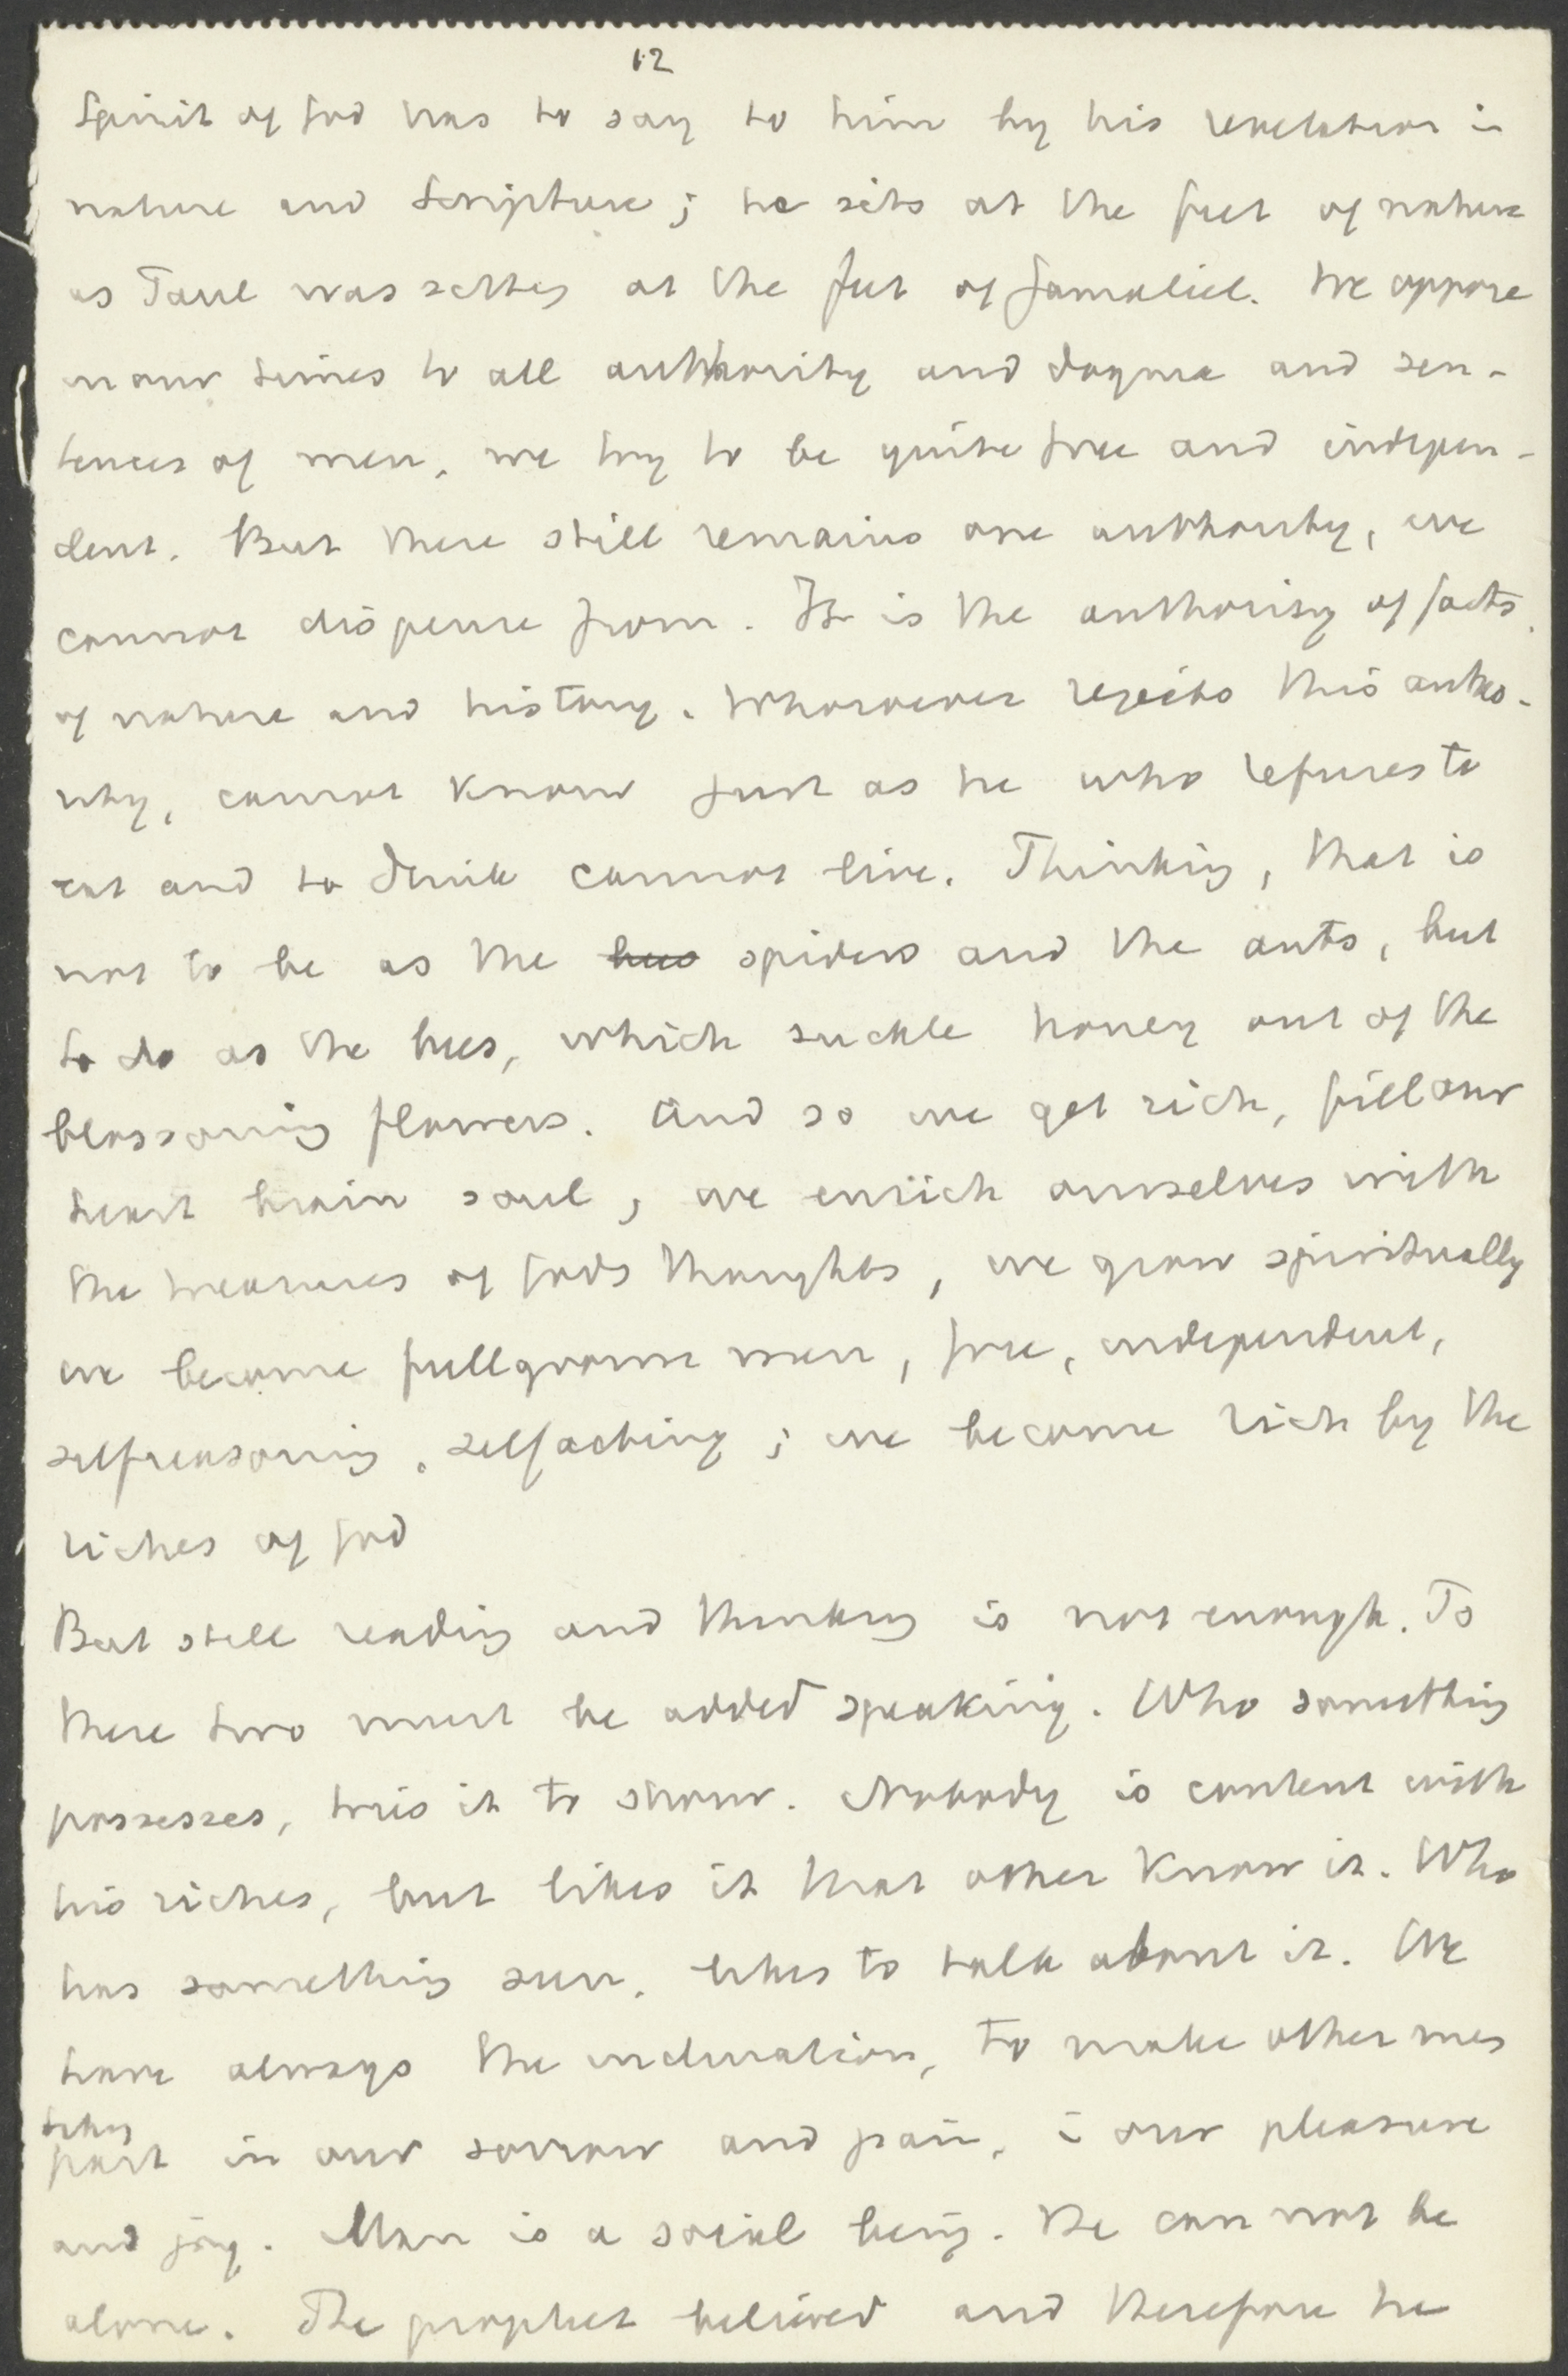 12
Spirit of God has to say to him by his revelation in
nature and Scripture; he sits at the feet of nature
as Paul was sitting at the feet of Gamaliel. We oppose
in our times to all authority and dogma and sen-
tences of men, we try to be quite free and indepen-
dent. But there still remains one authority, we
cannot dispense from. It is the authority of facts,
of nature and history. Whosoever rejects this autho-
rity, cannot know just as he who refuses to
eat and to drink cannot live. Thinking, that is
not to be as the bees spiders and the ants, but
to do as the bees, which suckle honey out of the
blossoming flowers. And so we get rich, fill our
heart brain soul, we enrich ourselves with
the treasures of Gods thoughts, we grow spiritually
we become fullgrown men, free, independent,
selfreasoning, selfacting; we become rich by the
riches of God
But still reading and thinking is not enough. To
these two must be added speaking. Who something
possesses, tries it to show. Nobody is content with
his riches, but likes it that other know it. Who
has something seen, likes to talk about it. We
have always the inclination, to make other men
taking
part in our sorrow and pain, in our pleasure
and joy. Man is a social being. He can not be
alone. The prophet believed and therefore he